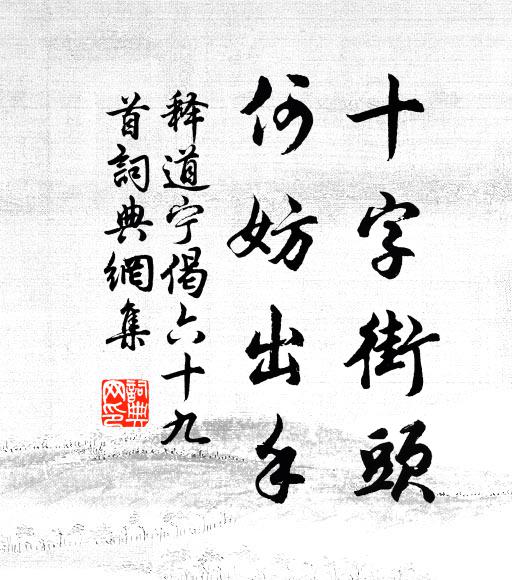 十字街頭
何妨出手
释道宁偈六十九
首詞典網集
詞典
网印